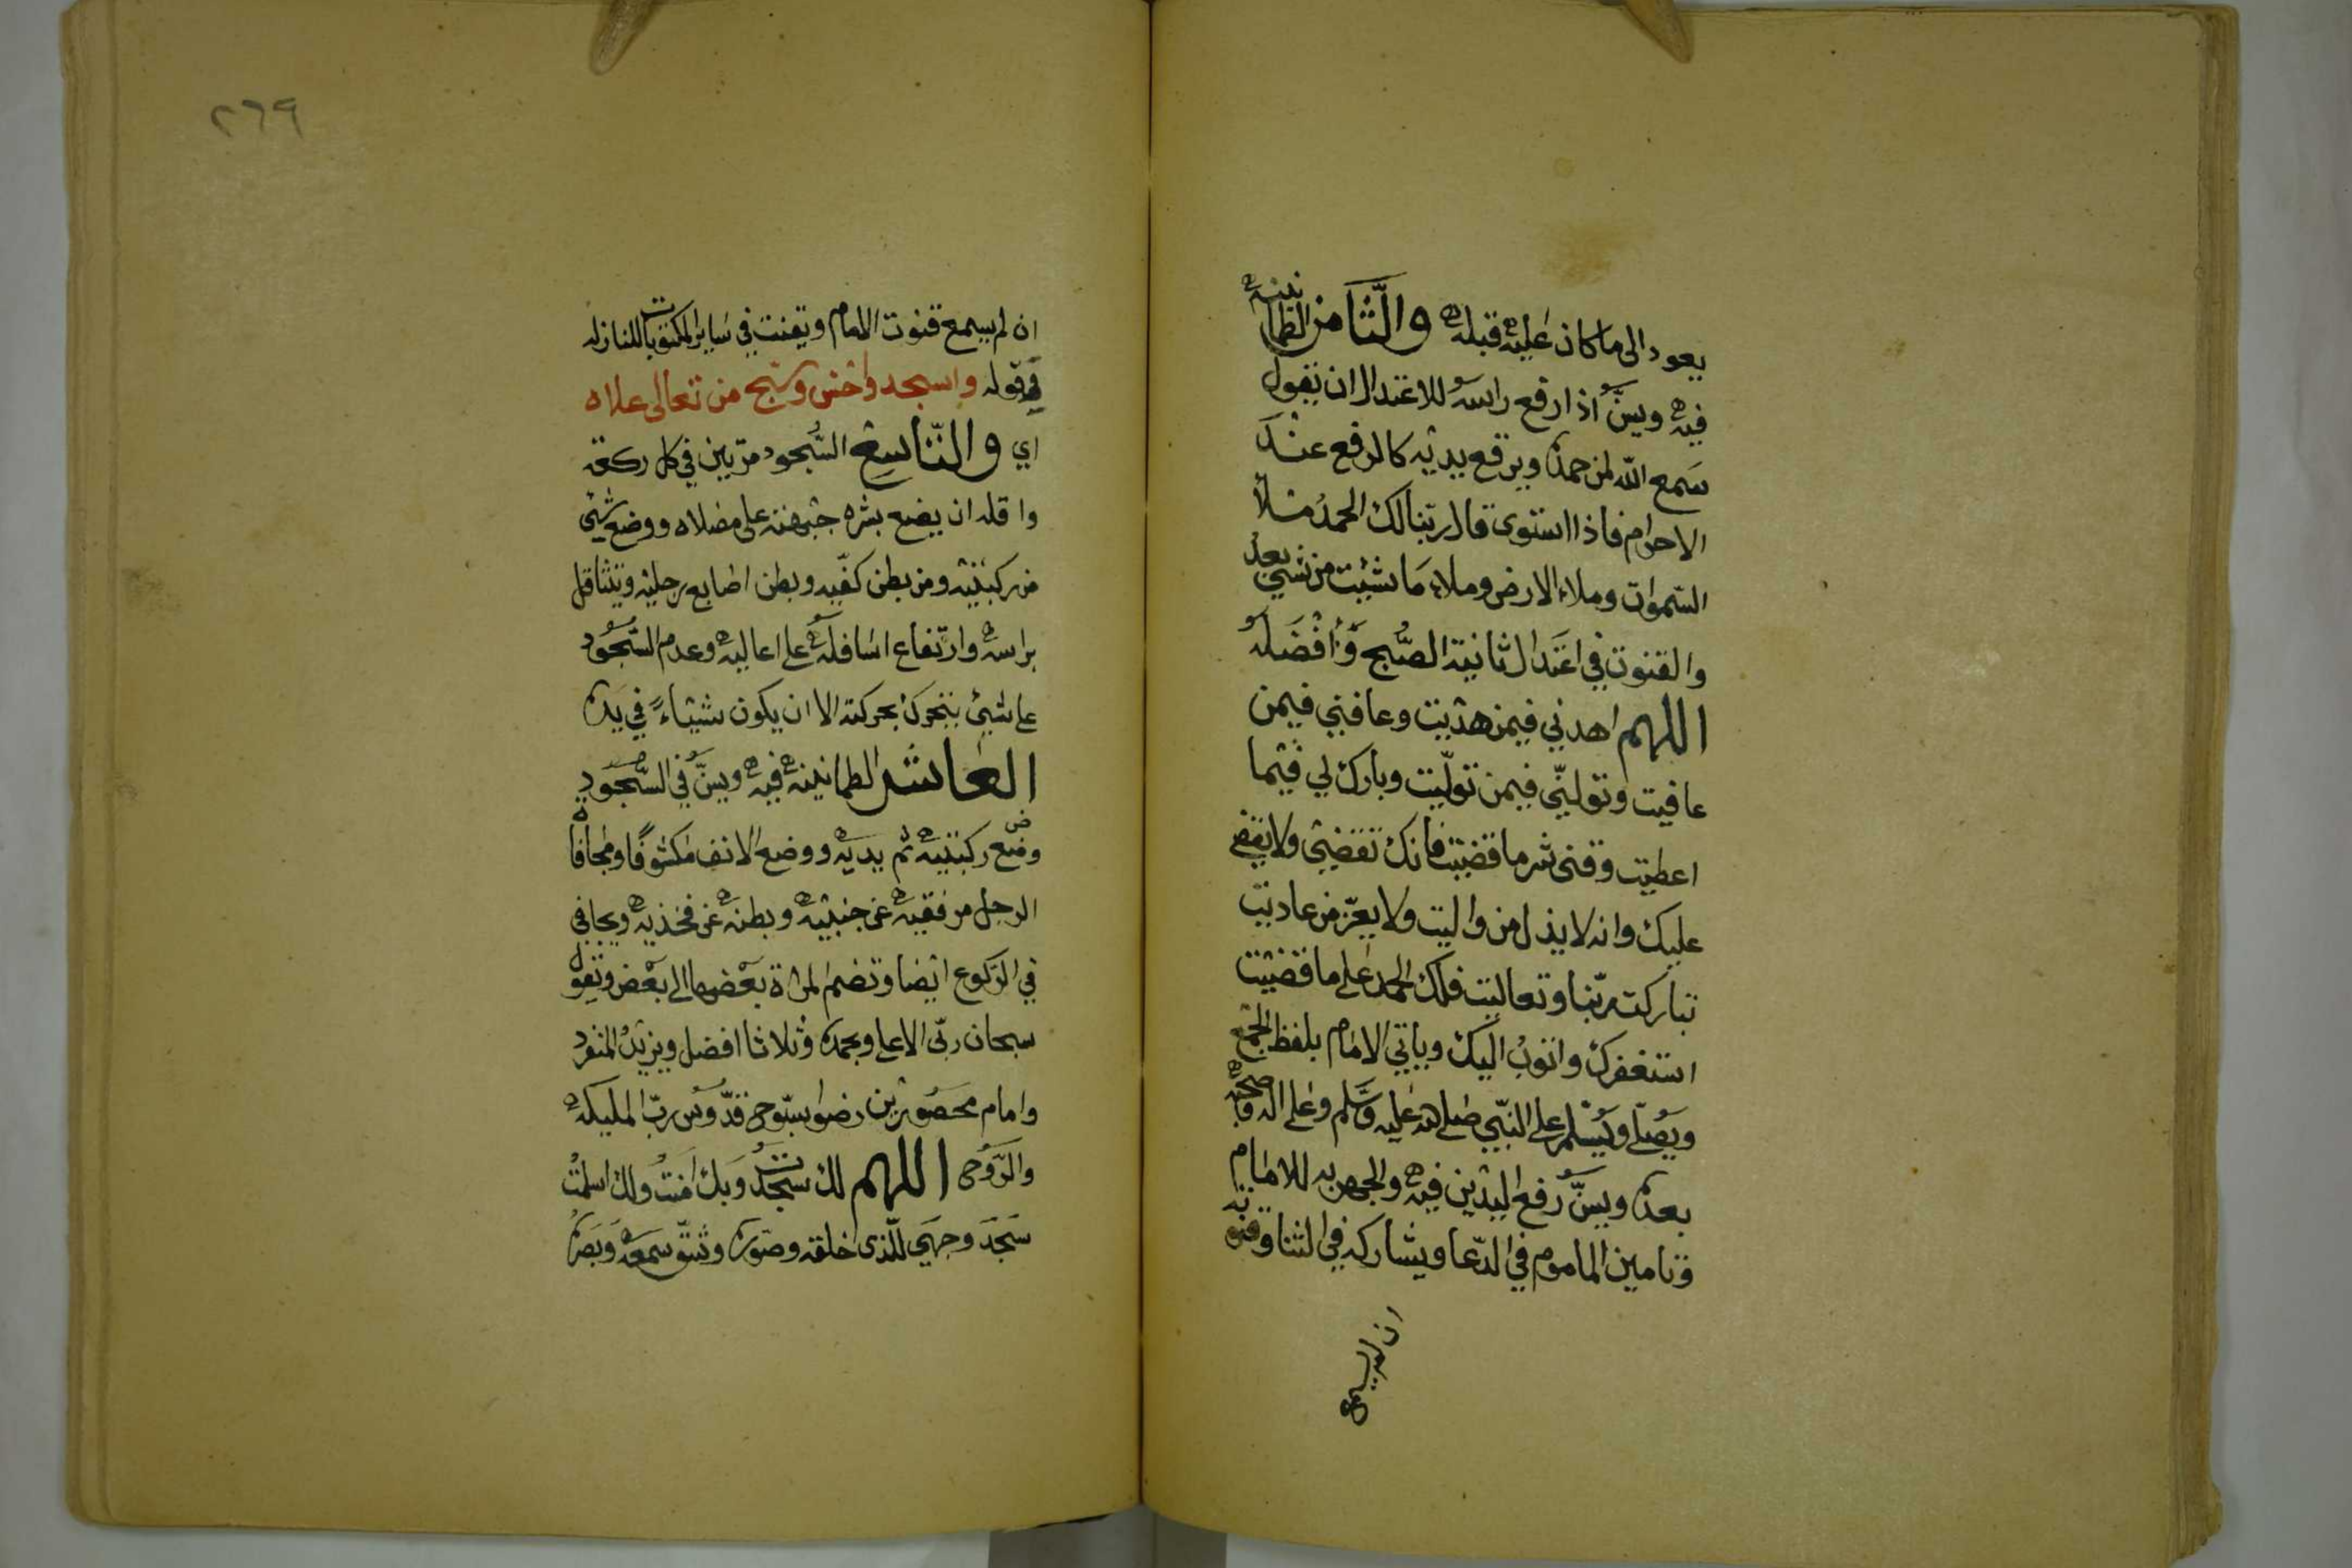 يعود الى ما كان عليه قبله والثامن الطمانينه
فيه ويسن اذا رفع راسه للاعتدال ان تقول
سمع الله لمن حمده ويرفع يديه كالرفع عند
الاحرام فاذا استوى قال ربنا لك الحمد ملأ
السموات وملاء الارض وملاء ما شيئت من شئ بعد
والقنوت في اعتدال ثانية الصبح وأفضله
اللهم اهدني فيمن هديت وعافني فيمن
عافيت وتولني فيمن توليت وبارك لي فيما
اعطيت وقنى شر ما قضيت فانك تقضي ولا يقضى
عليك وانه لا يذل من واليت ولا يعز من عاديت
تباركت ربنا وتعاليت فلك الحمد على ما قضيت
استغفرك واتوب اليك وياتي الامام بلفظ الجمع
ويصلي ويسلم على النبي صلى الله عليه وسلم وعلى اله وصحبه
بعده ويسن رفع اليدين فيه والجهر به للامام
وتامين الماموم في الدعا ويشاركه في الثنا وقنوته
ان لم يسمع
٢٦٩
ان لم يسمع قنوت الامام ويقنت في ساير المكتوبات للنازله
في قوله واسجد واخش وسبح من تعالى علاه
اي والتاسع السجود مرتين في كل ركعة
واقله ان يضع بشره جبهته على مصلاه ووضع شئ
من ركبتيه ومن بطن كفيه وبطن اصابع رجليه ويتثاقل
براسه وارتفاع اسافله على اعاليه وعدم السجود
على شئ يتحرك بحركته الا ان يكون شيئاء في يده
العاشر الطمانينه فيه ويسن في السجود
وضع ركبتيه ثم يديه ووضع الانف مكشوفا ومجافاة
الرجل مرفقيه عن جنبيه وبطنه عن فخذيه ويجافى
في الركوع ايضا وتضم المراة بعضها الى بعض وتقول
سبحان ربى الاعلى وبحمده وثلاثا افضل ويزيد المنفرد
وامام محصورين رضوا سبوح قدوس رب المليكه
والروح اللهم لك سجدت وبك امنت ولك اسلمت
سجد وجهي للذى خلقه وصوره وشق سمعه وبصره